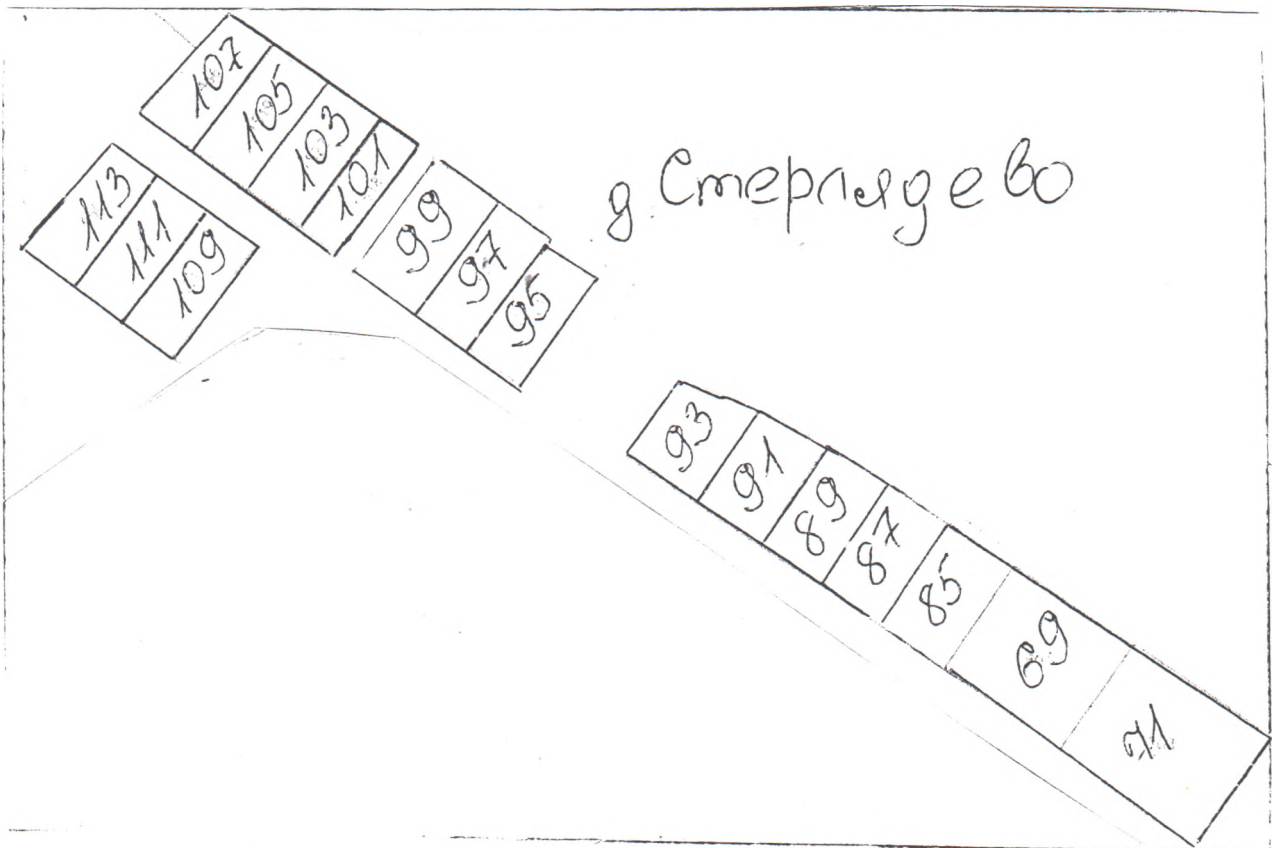 107
105
103
101
113
111
109
99
97
95
д. Стерлядево
93
91
89
87
85
69
71